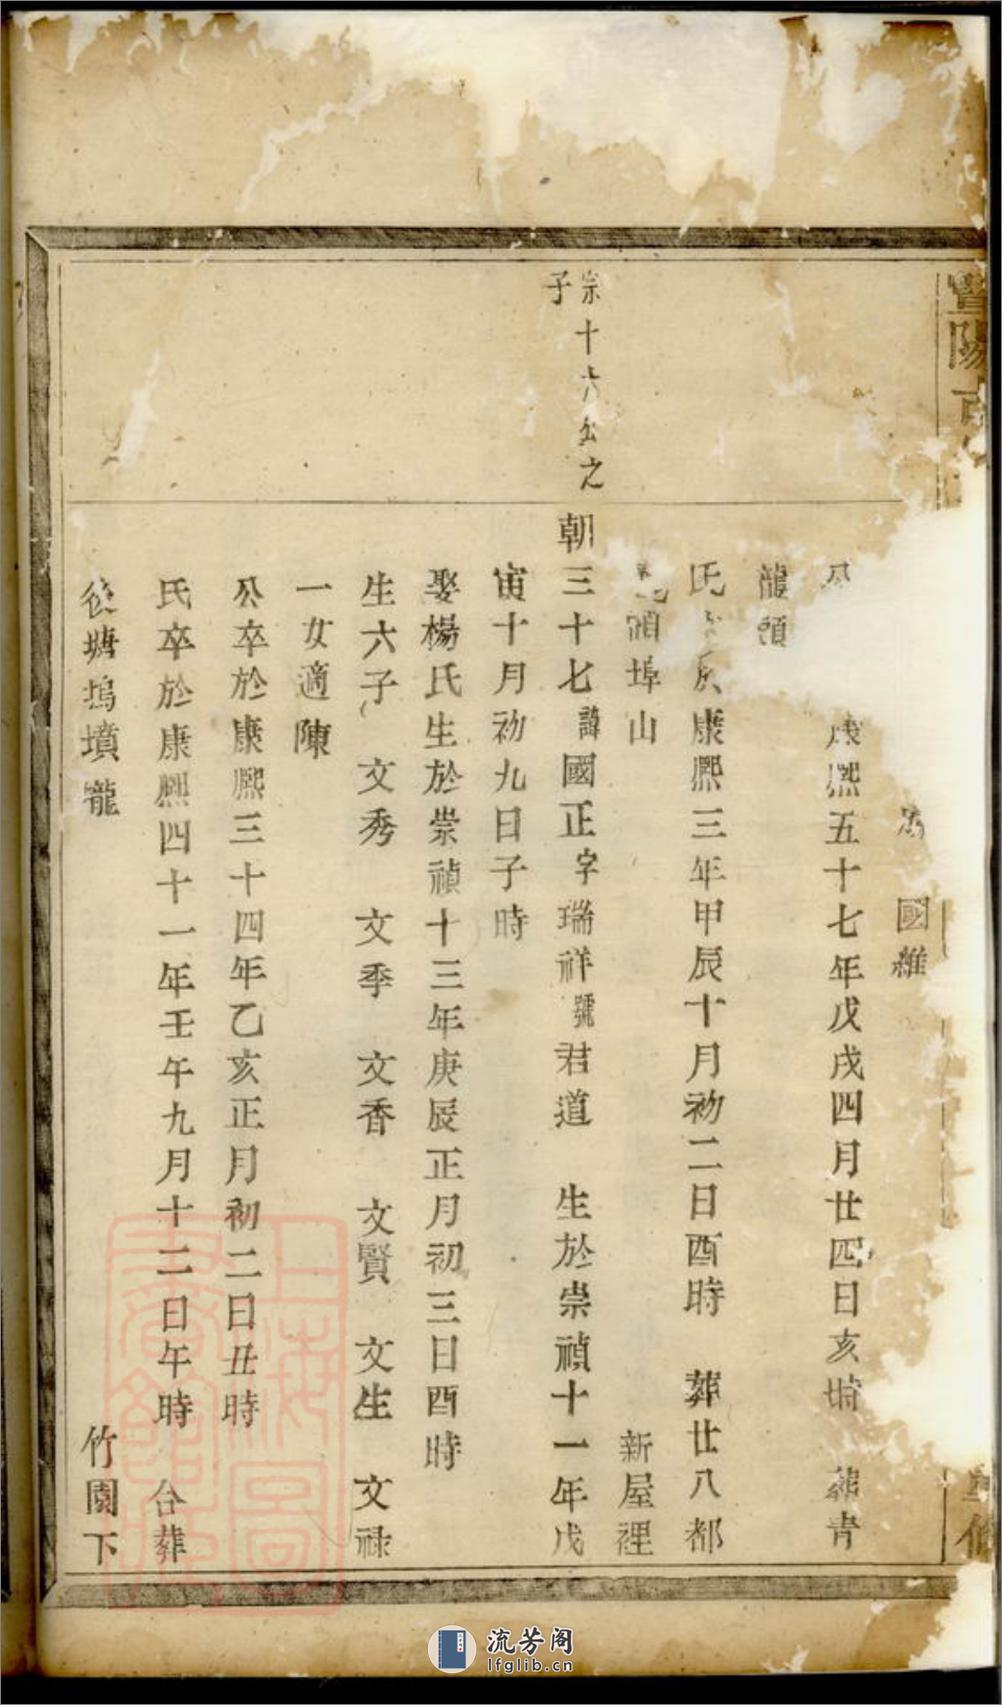 暨陽
國維
康熙五十七年戊戌四月廿四日亥時 葬青
龍頭
氏 於康熙三年甲辰十月初二日酉時 葬廿八都
頭埠山 新屋裡
宗十六公之
子
朝三十七諱國正字瑞祥號君道 生於崇禎十一年戊
寅十月初九日子時
娶楊氏生於崇禎十三年庚辰正月初三日酉時
生六子 文秀 文季 文香 文賢 文生 文祿
一女適陳
公卒於康熙三十四年乙亥正月初二日丑時
氏卒於康熙四十一年壬午九月十二日午時 合葬
後塘塢墳壠 竹園下
上海圖書館藏
流芳阁
lfglib.cn